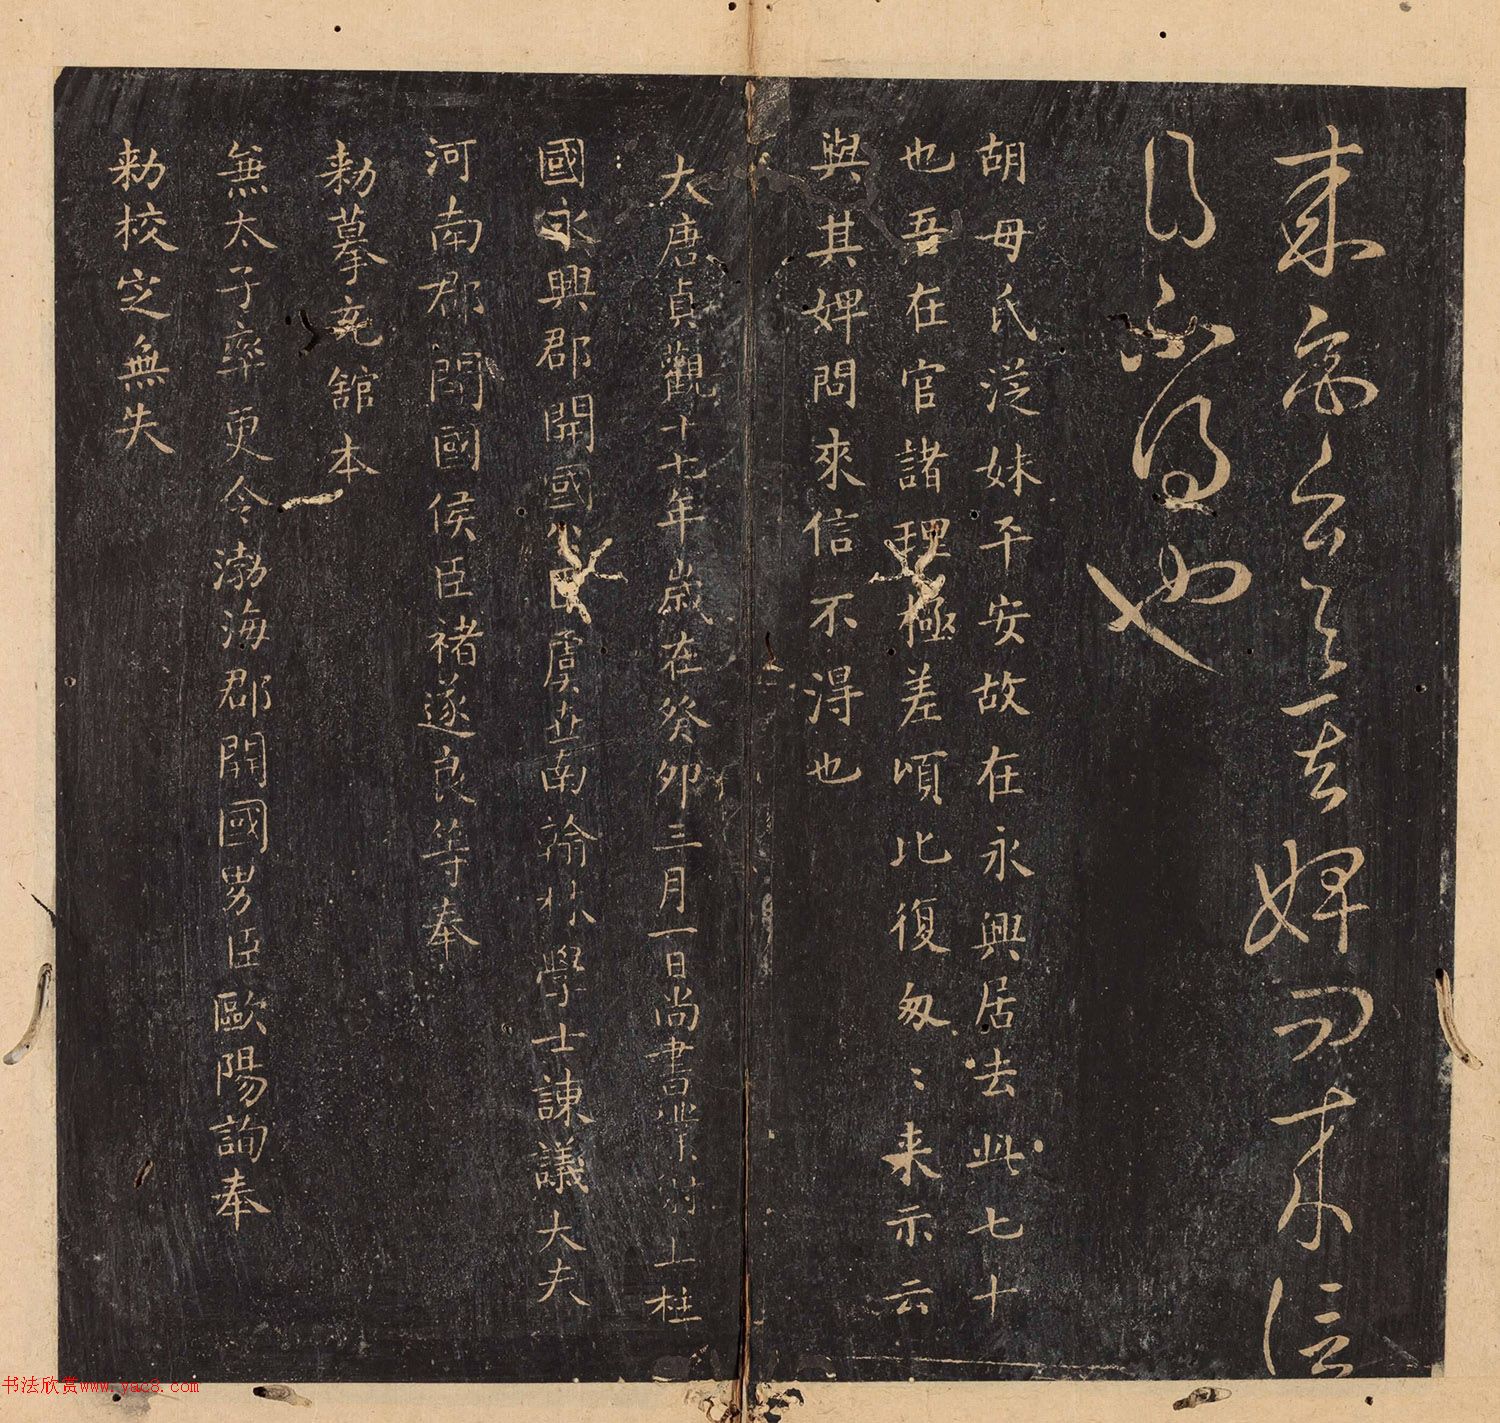 来示云與其婢問来信
不得也
胡母氏泛妹平安故在永興居去此七十
也吾在官諸理極差頃比復匆〻来示云
與其婢問來信不得也
大唐貞觀十七年歲在癸卯三月一日尚書僕射上柱
國永興郡開國公臣虞世南翰林學士諫議大夫
河南郡開國侯臣褚遂良等奉
勅摹充館本
無太子率更令渤海郡開國男臣歐陽詢奉
勅校定無失
书法欣赏www.yac8.com